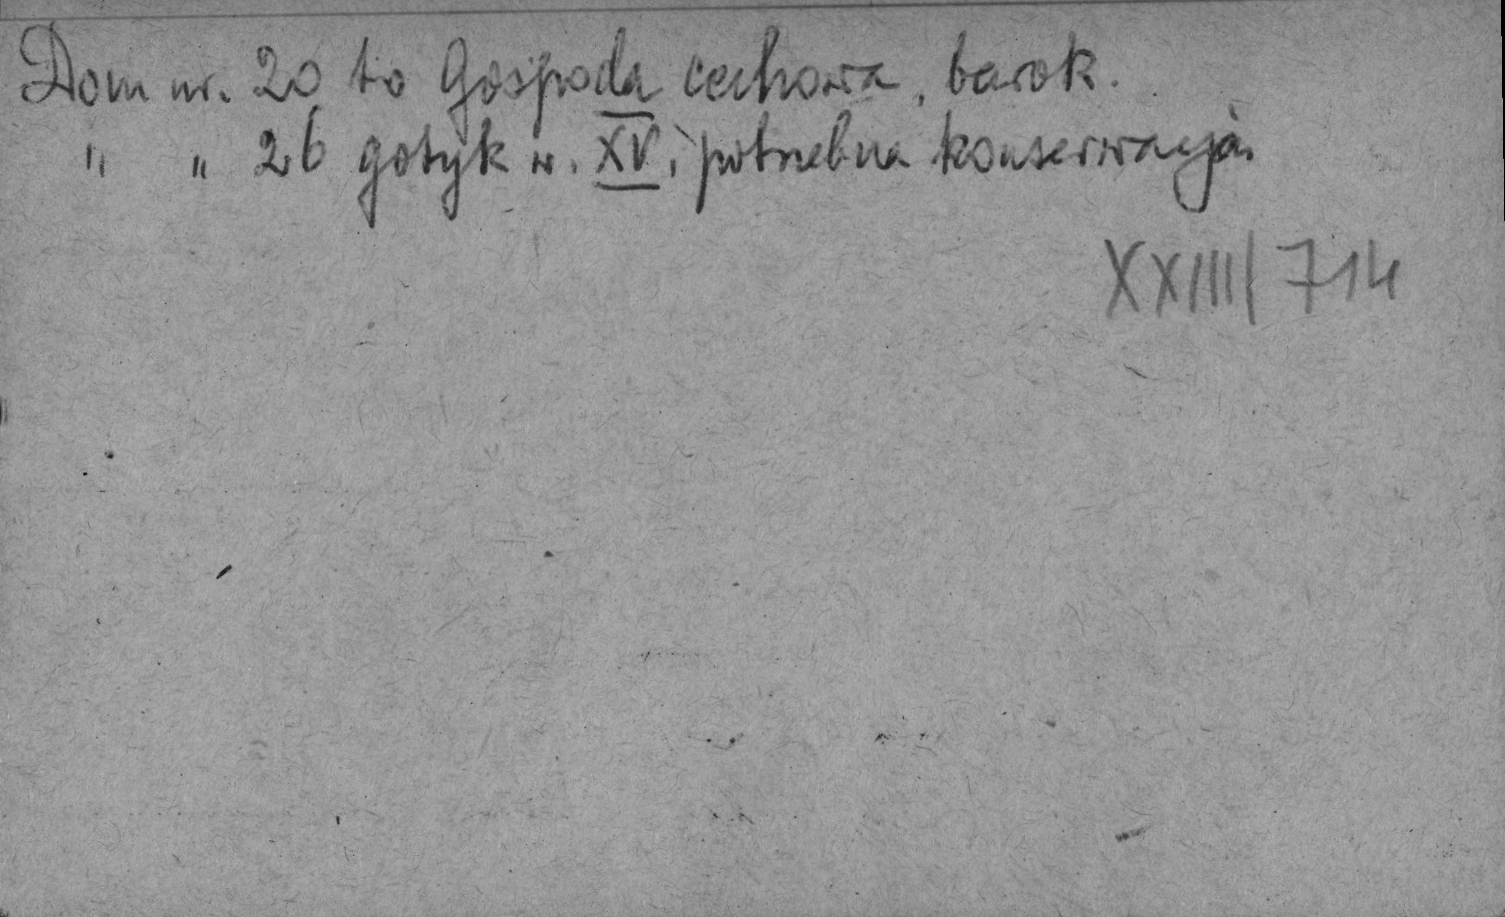 Dom nr. 20 to Gospoda cechowa, barok.
" " 26 gotyk w. XV, potrzebna konserwacja.
XXIII/714